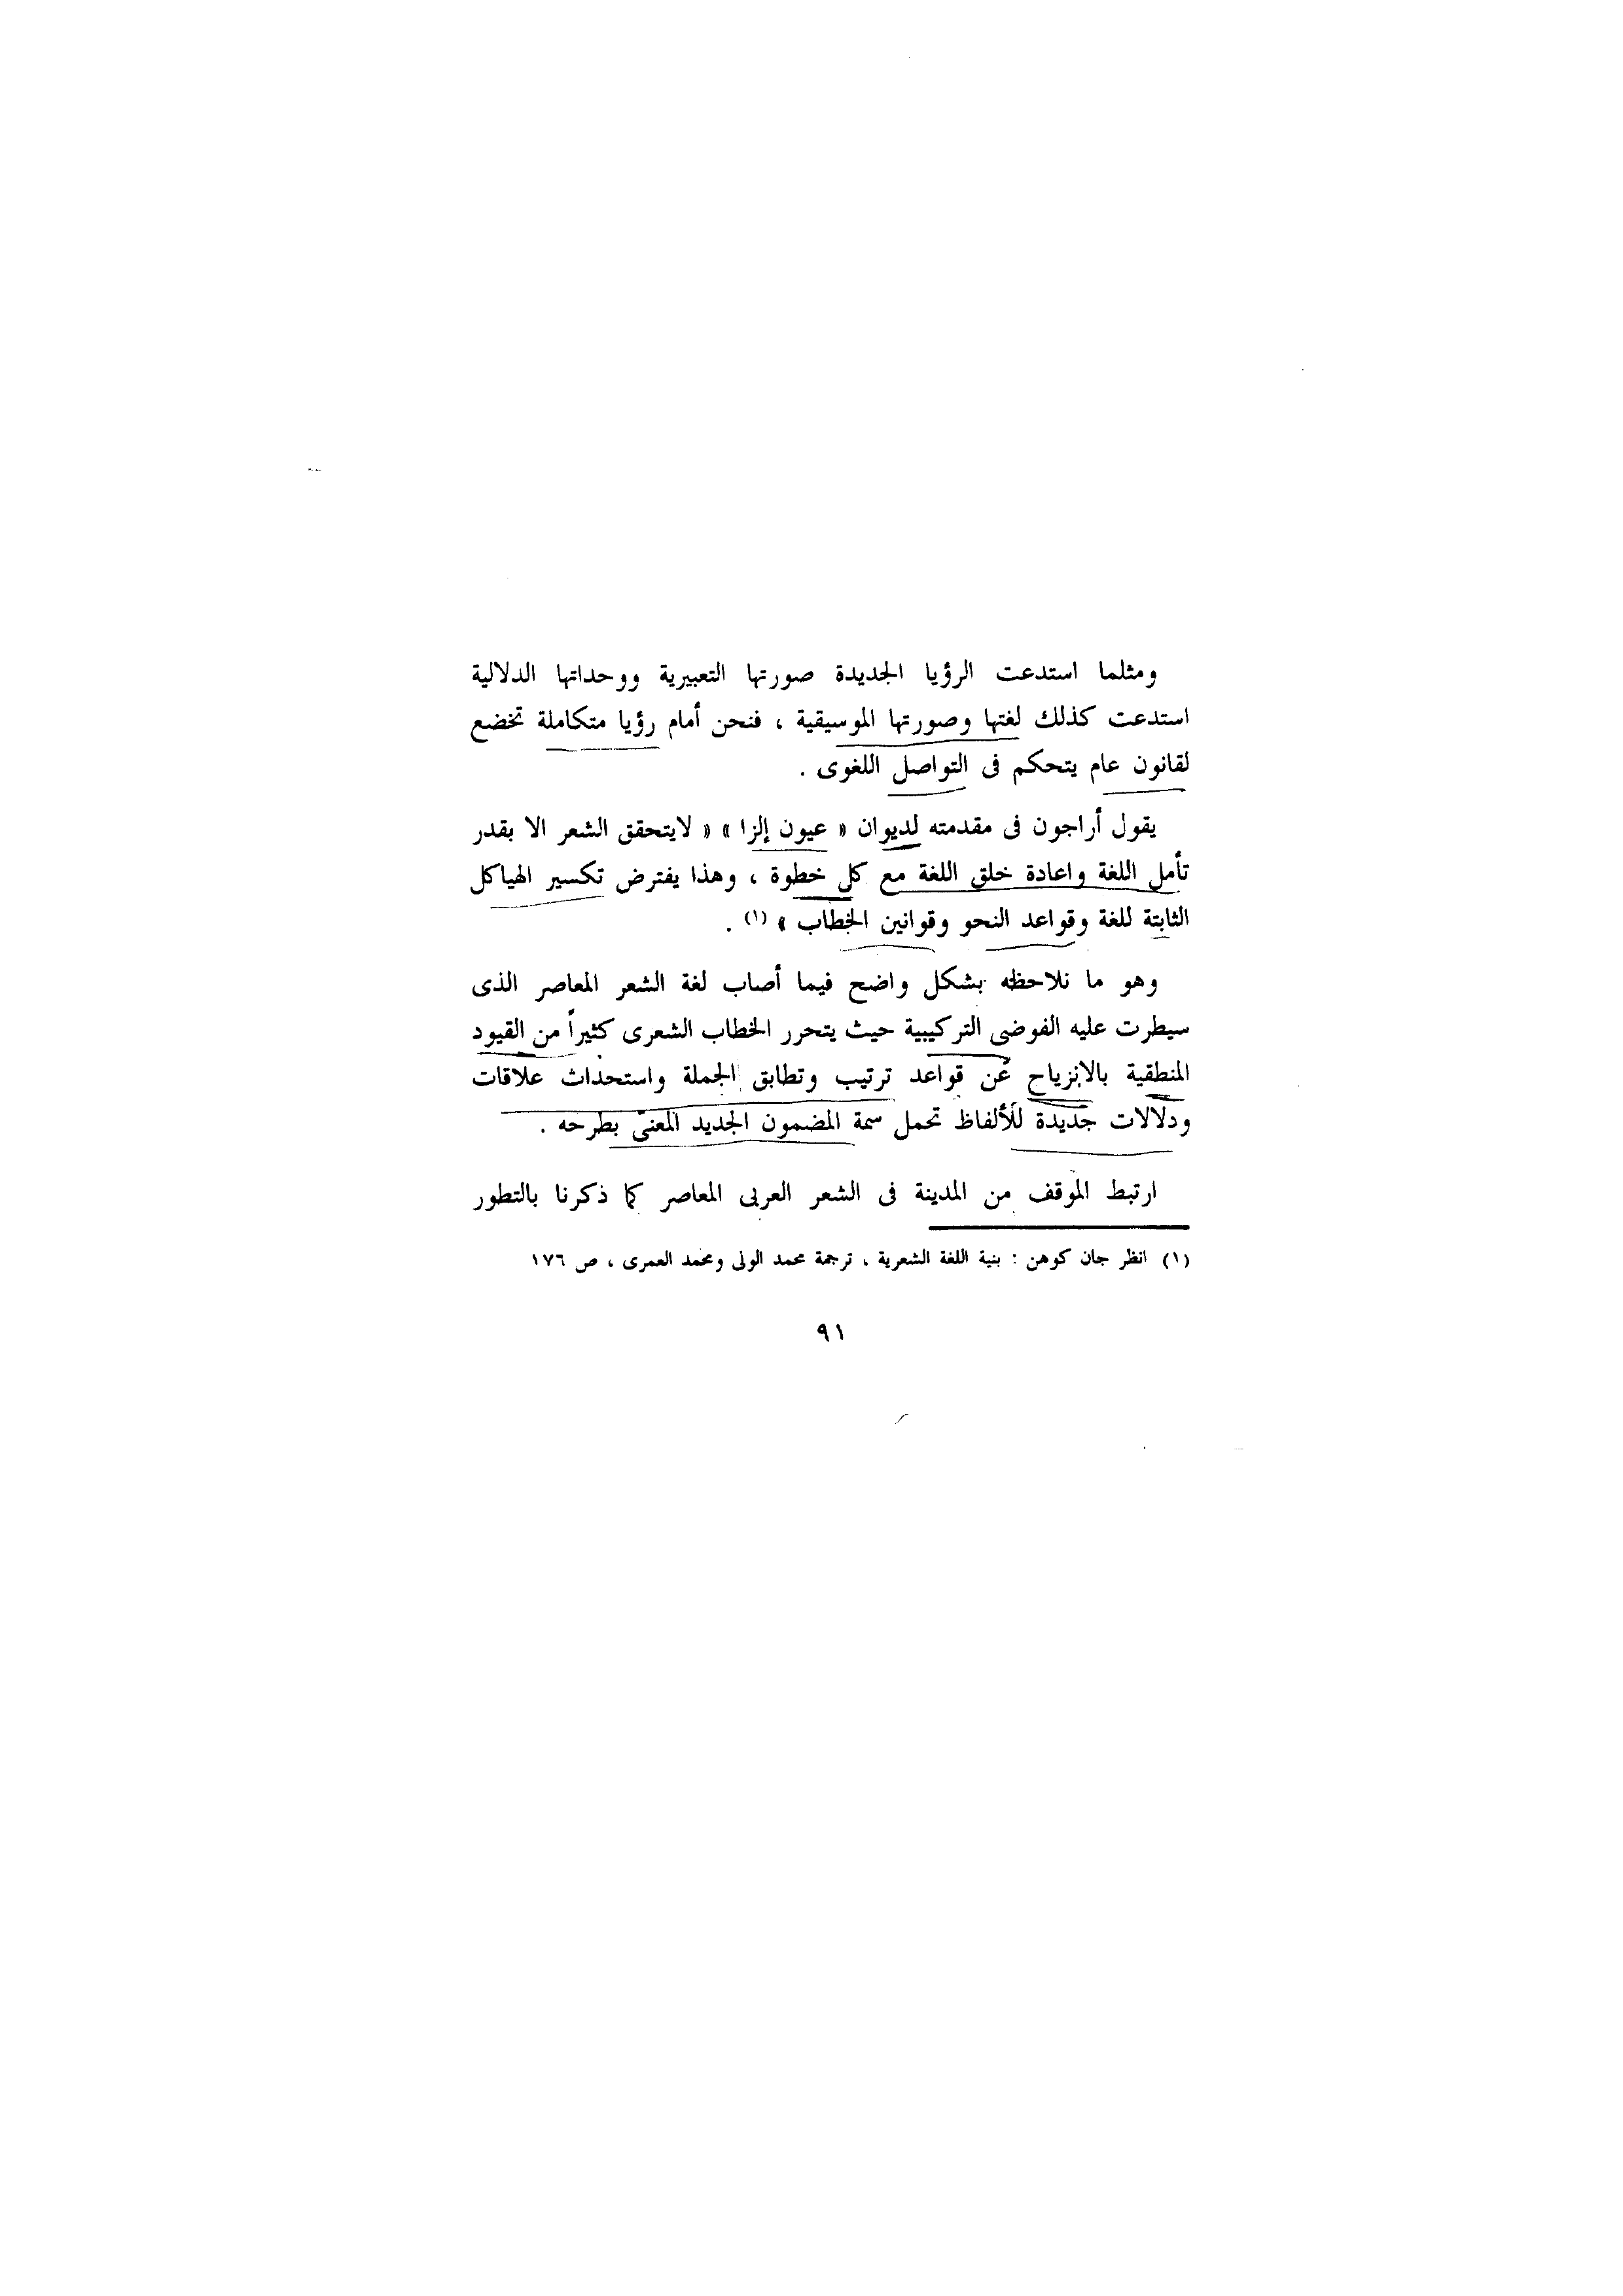 ومثلما استدعت الرؤيا الجديدة صورتها التعبيرية ووحداتها الدلالية
استدعت كذلك لغتها وصورتها الموسيقية ، فنحن أمام رؤيا متكاملة تخضع
لقانون عام يتحكم فى التواصل اللغوى .
يقول أراجون فى مقدمته لديوان « عيون إلزا » « لايتحقق الشعر الا بقدر
تأمل اللغة واعادة خلق اللغة مع كل خطوة ، وهذا يفترض تكسير الهياكل
الثابتة للغة وقواعد النحو وقوانين الخطاب » (١) .
وهو ما نلاحظه بشكل واضح فيما أصاب لغة الشعر المعاصر الذى
سيطرت عليه الفوضى التركيبية حيث يتحرر الخطاب الشعرى كثيراً من القيود
المنطقية بالانزياح عن قواعد ترتيب وتطابق الجملة واستحداث علاقات
ودلالات جديدة للألفاظ تحمل سمة المضمون الجديد المعنى بطرحه .
ارتبط الموقف من المدينة فى الشعر العربى المعاصر كما ذكرنا بالتطور
(١) انظر جان كوهن : بنية اللغة الشعرية ، ترجمة محمد الولى ومحمد العمرى ، ص ١٧٦
٩١